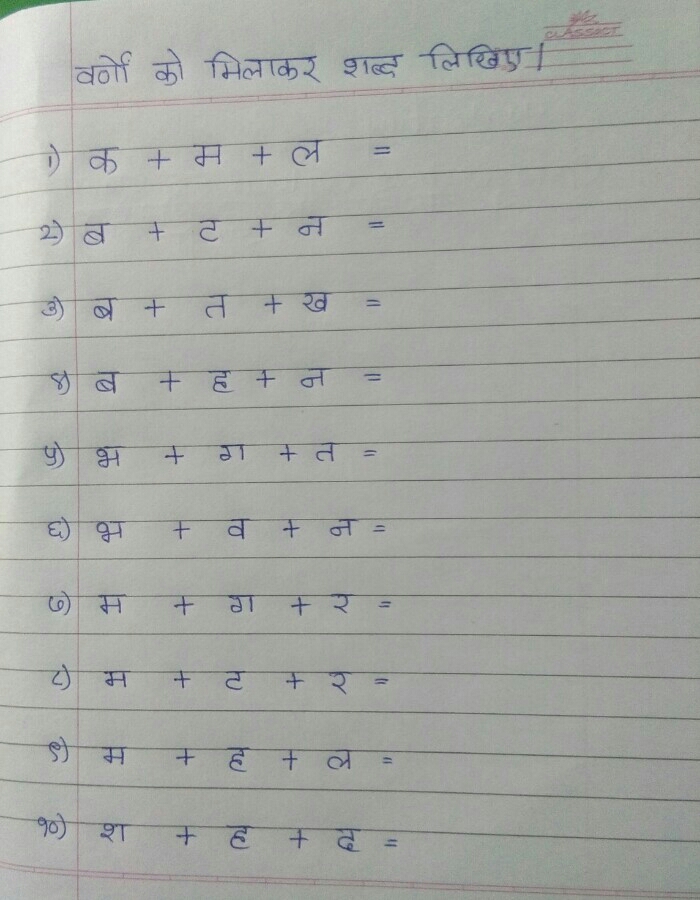 CLASSIC
वर्णों को मिलाकर शब्द लिखिए।
१) क + म + ल =
२) ब + ट + न =
३) ब + त + ख =
४) ब + ह + न =
५) भ + ग + त =
६) भ + व + न =
७) म + ग + र =
८) म + ट + र =
९) म + ह + ल =
१०) श + ह + द =